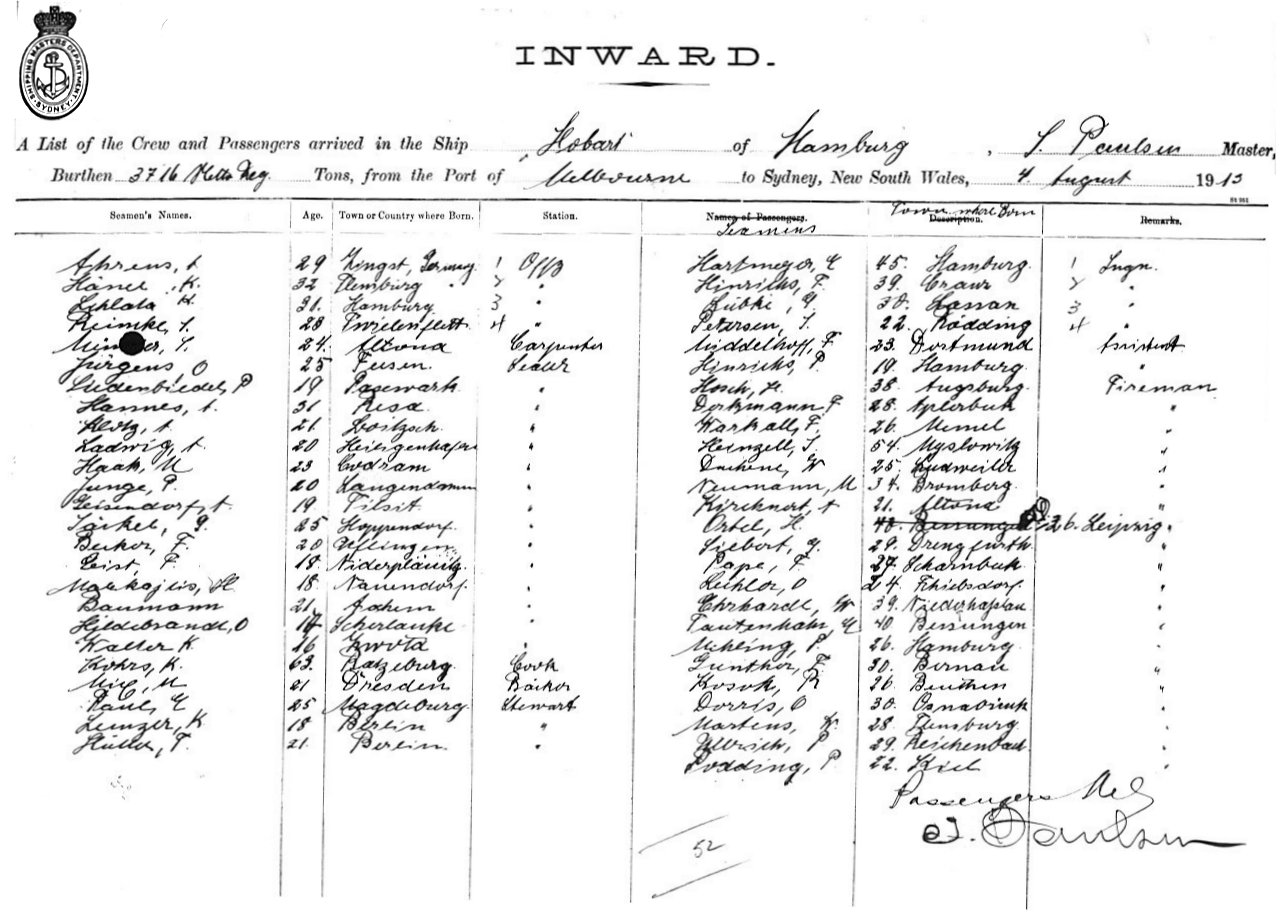 SHIPPING MASTERS DEPARTMENT. SYDNEY.
INWARD.
A List of the Crew and Passengers arrived in the Ship Hobart of Hamburg, J. Paulsen Master,
Burthen 3716 Netto Reg. Tons, from the Port of Melbourne to Sydney, New South Wales, 4. August 1913
Seamen's Names. Age. Town or Country where Born. Station. Names of Passengers. Seamens Description. Town where Born Remarks.
Ahrens, A 29 Zingst, Germany 1 Off Hartmeyer, E 45. Hamburg. 1 Ingn.
Hänel, K. 32 Flensburg " 2 " Hinrichs, F. 39. 2 "
31. Hamburg 3 " Lübke, G. 38. Hassan 3 "
Reimke, J. 28 Twielenfleth 4 " Petersen, J. 22. Rödding 4 "
24. Altona Carpenter Middelhoff, F. 33. Dortmund Assistent
Jürgens, O 25 Seiler Hinrichs, P. 19. Hamburg. "
Siedenbiedel, P 19 Pasewark " Hosch, 38. Augsburg. Fireman
Hannes, A. 31 Resa " F. 28. Aplerbeck "
Klotz, A. 21 Loitzsch " Warkall, F. 26. Memel "
Ladwig, A 20 Heiligenhafen " Heinzell, J. 54. Myslowitz "
Haak, M 23 Codram " Duchene, W 25. Ludweiler "
Junge, P. 20 " Neumann, M 34. Bromberg. "
Geisendorf, A 19 Tilsit " A 21. Altona "
Jäckel, G. 25 Hoppendorf. " Ortel, H. 40. Bessungen 26. Leipzig "
Becker, F. 20 Uflingen " Siebert, G. 29. Drengfurth "
Geist, F. 18. Niderplänitz " Pape, F. 27. Scharnbeck "
18. Nauendorf. " O 24. "
Baumann 21. Achem " Ehrhardt, W 39. Niederhaslau "
Hildebrandt, O 17 " Tautenhahn, E 40 Bessungen "
Walter K. 16 Zwota " Mehling, P. 26. Hamburg.
Kohrs, K. 63. Ratzeburg. Cook Gunther, F. 30. Bernau "
M 21 Dresden Bäcker Kosok, R 26. Beuthen "
Paul, E 25 Magdeburg. Stewart Dorris, O 30. Osnabrück "
Lenzer, K 18 Berlin " Martens, W. 28. Flensburg. "
Müller, F. 21. Berlin. " Ullrich, P 29. Reichenbach "
Podding, P. 22. Kiel "
Passengers Nil
J. Paulsen
52